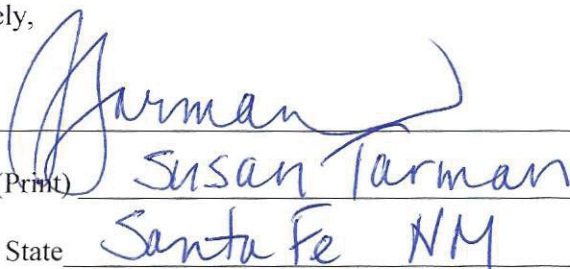 ely,
STarman
(Print) Susan Tarman
State Santa Fe NM